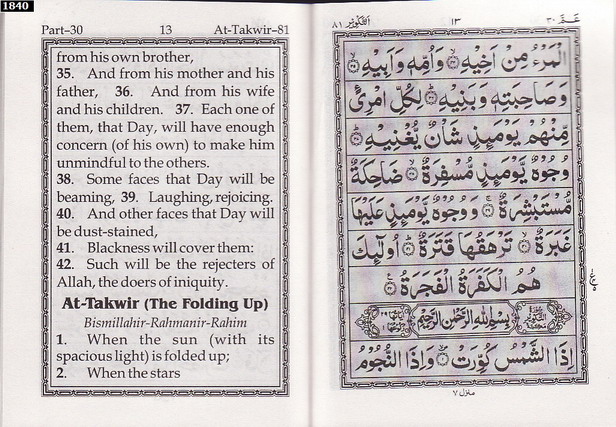 1840
Part–30 13 At-Takwir–81
from his own brother,
35. And from his mother and his
father, 36. And from his wife
and his children. 37. Each one of
them, that Day, will have enough
concern (of his own) to make him
unmindful to the others.
38. Some faces that Day will be
beaming, 39. Laughing, rejoicing.
40. And other faces that Day will
be dust-stained,
41. Blackness will cover them:
42. Such will be the rejecters of
Allah, the doers of iniquity.
At-Takwir (The Folding Up)
Bismillahir-Rahmanir-Rahim
1. When the sun (with its
spacious light) is folded up;
2. When the stars
التكوير ٨١ ١٣ عَمَّ ٣٠
الْمَرْءُ مِنْ اَخِيْهِ وَاُمِّهٖ وَاَبِيْهِ
وَصَاحِبَتِهٖ وَبَنِيْهِ لِكُلِّ امْرِئٍ
مِّنْهُمْ يَوْمَئِذٍ شَاْنٌ يُّغْنِيْهِ
وُجُوْهٌ يَّوْمَئِذٍ مُّسْفِرَةٌ ضَاحِكَةٌ
مُّسْتَبْشِرَةٌ وَوُجُوْهٌ يَّوْمَئِذٍ عَلَيْهَا
غَبَرَةٌ تَرْهَقُهَا قَتَرَةٌ اُولٰٓئِكَ
هُمُ الْكَفَرَةُ الْفَجَرَةُ
بِسْمِ اللّٰهِ الرَّحْمٰنِ الرَّحِيْمِ
اِذَا الشَّمْسُ كُوِّرَتْ وَاِذَا النُّجُوْمُ
منزل ٧